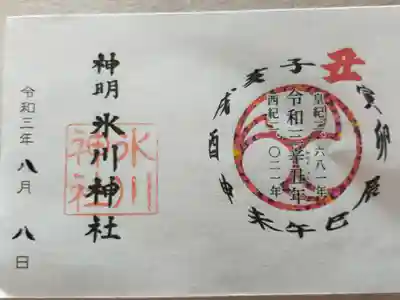 子丑寅卯辰巳午未申酉戌亥
皇紀二六八一年
令和三辛丑年
西紀二〇二一年
神明 氷川神社
氷川
神社
令和三年八月八日